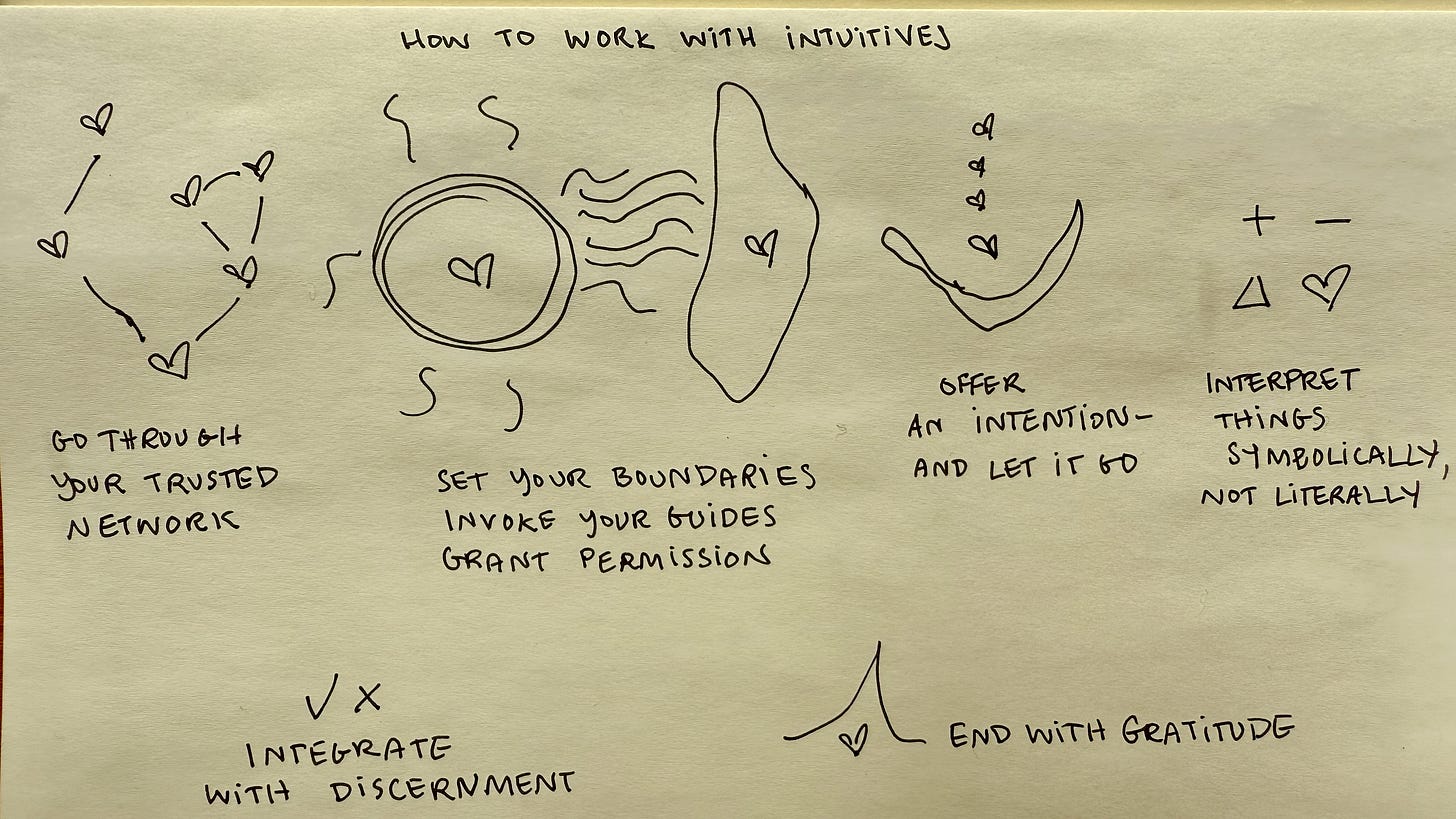 HOW TO WORK WITH INTUITIVES
GO THROUGH
YOUR TRUSTED
NETWORK
SET YOUR BOUNDARIES
INVOKE YOUR GUIDES
GRANT PERMISSION
OFFER
AN INTENTION-
AND LET IT GO
+ -
INTERPRET
THINGS
SYMBOLICALLY,
NOT LITERALLY
✓ X
INTEGRATE
WITH DISCERNMENT
END WITH GRATITUDE